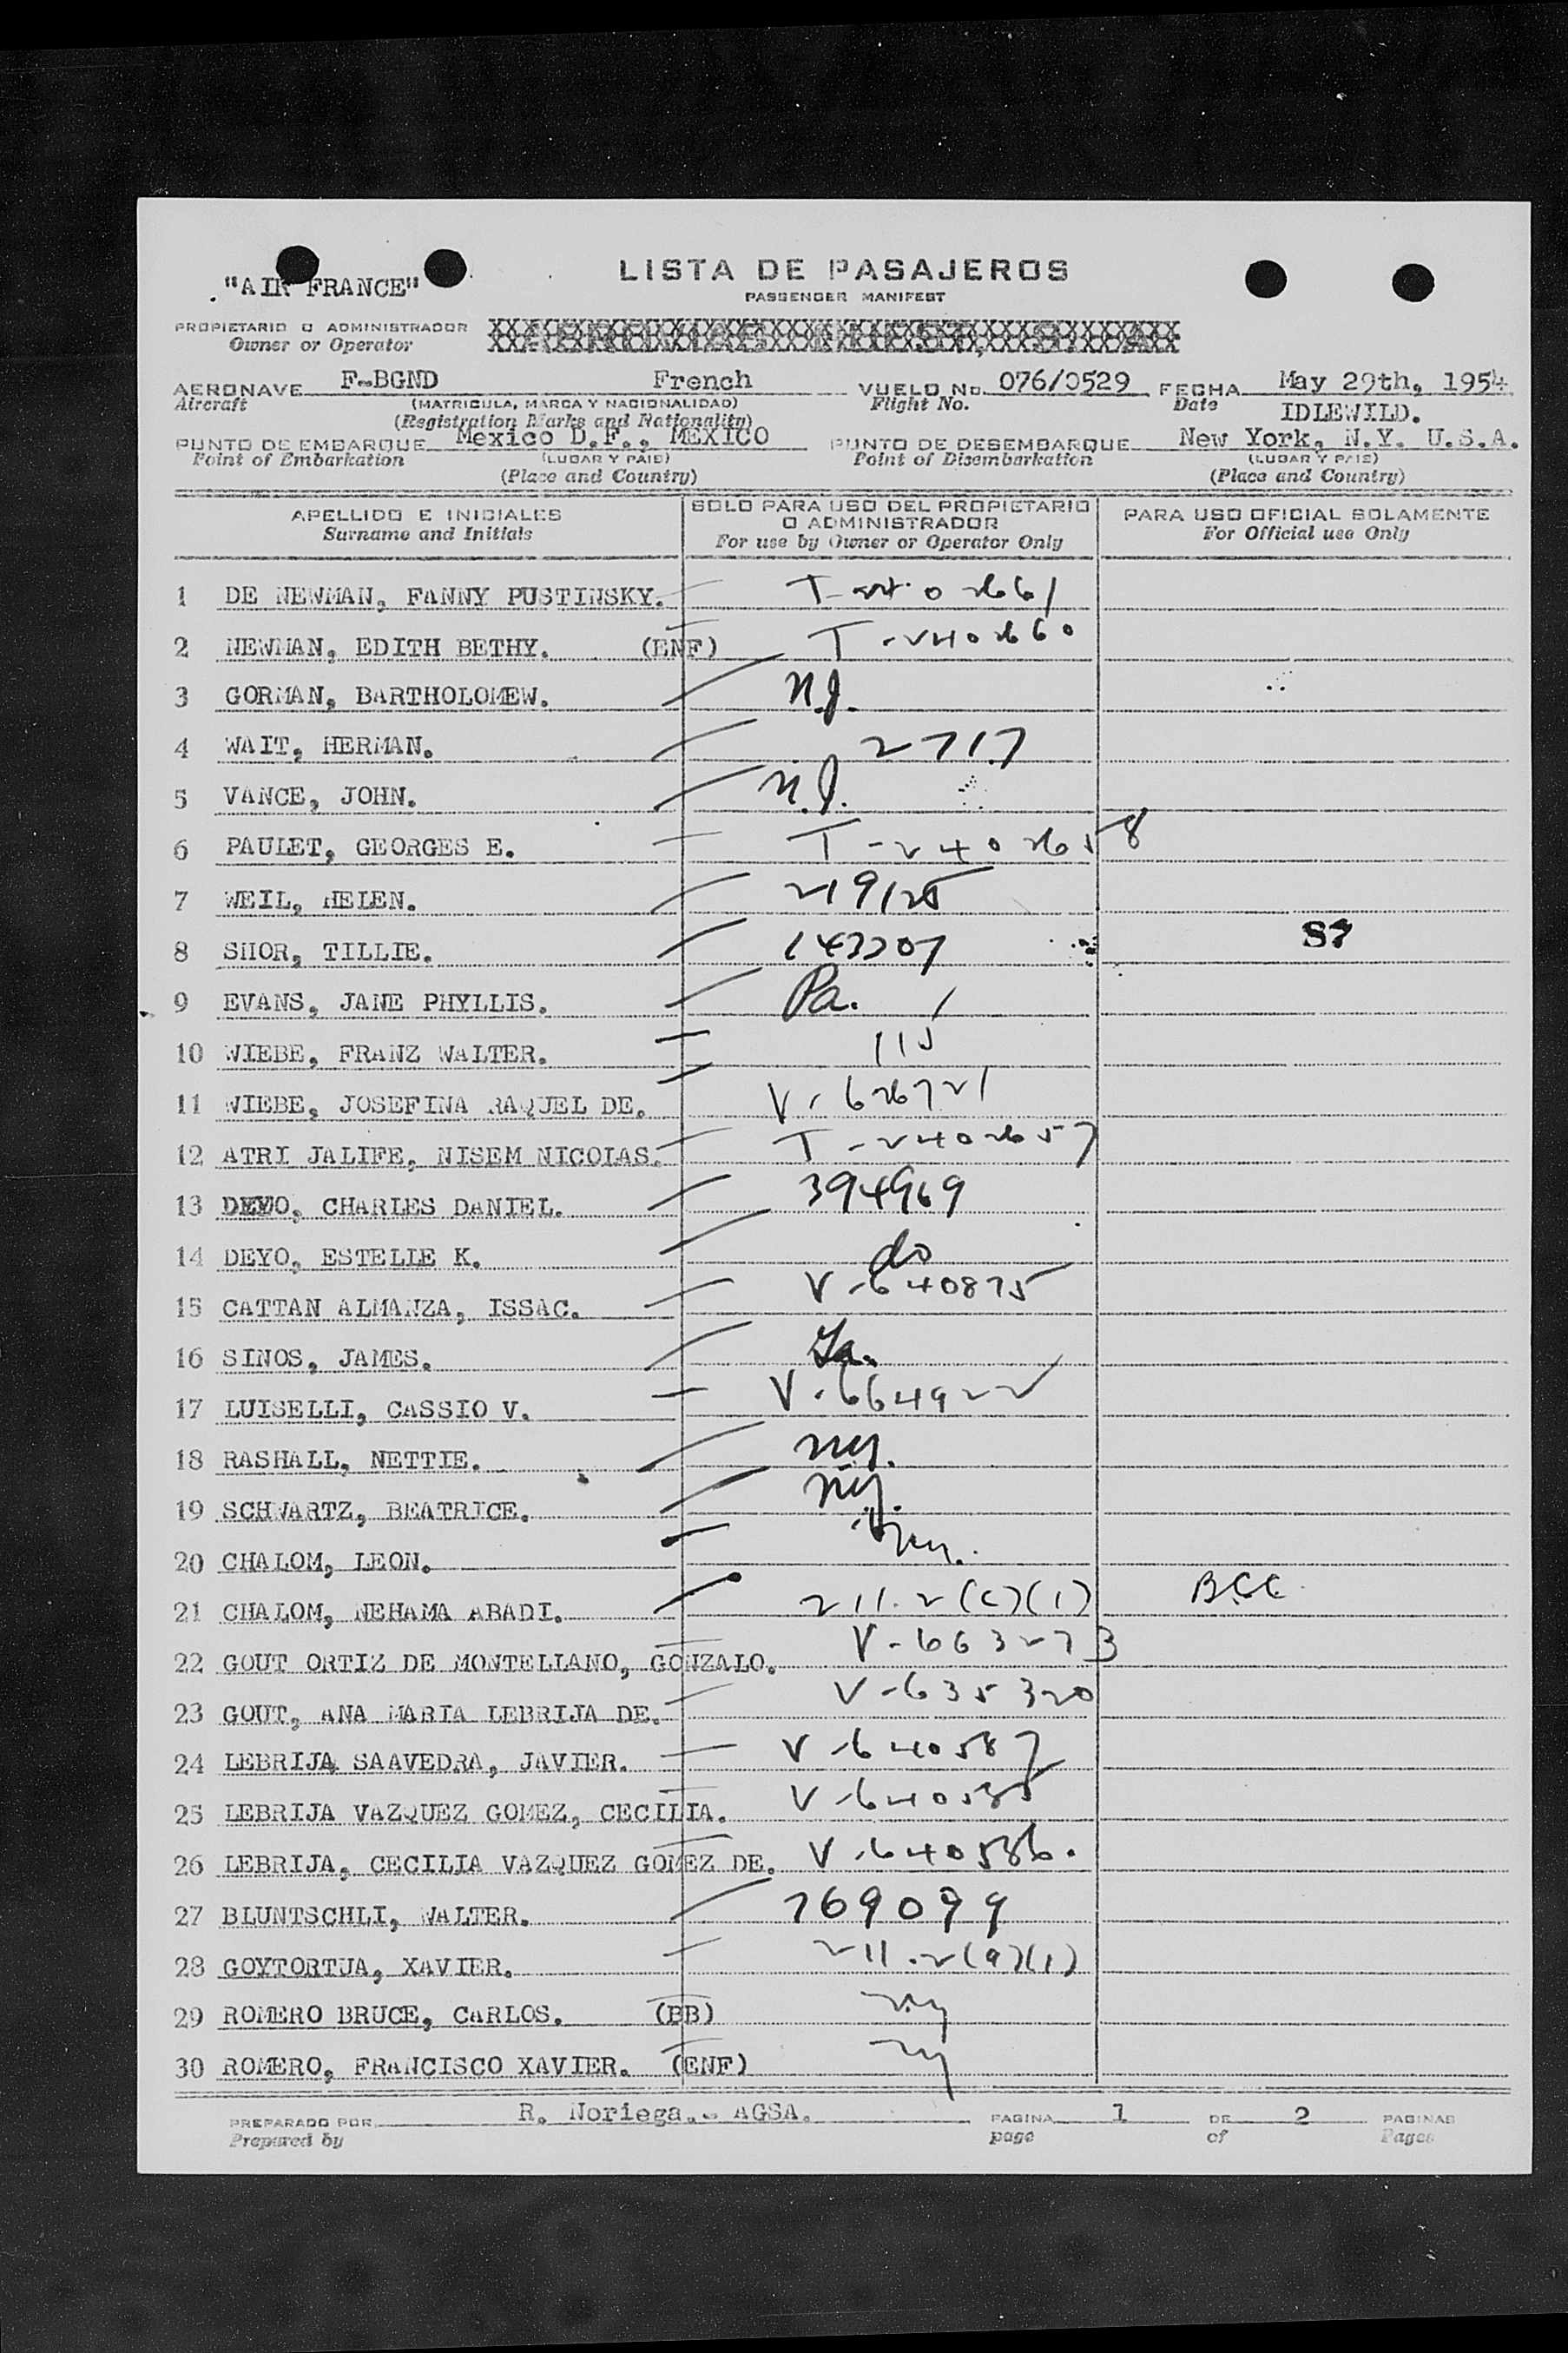 LISTA DE PASAJEROS
"AIR FRANCE"
PASSENGER MANIFEST
PROPIETARIO O ADMINISTRADOR
Owner or Operator
AERONAVE F-BGND French VUELO No. 076/0529 FECHA May 29th, 1954
Aircraft (MATRICULA, MARCA Y NACIONALIDAD) Flight No. Date IDLEWILD.
(Registration Marks and Nationality)
PUNTO DE EMBARQUE Mexico D.F., MEXICO PUNTO DE DESEMBARQUE New York, N.Y. U.S.A.
Point of Embarkation (LUGAR Y PAIS) Point of Disembarkation (LUGAR Y PAIS)
(Place and Country) (Place and Country)
APELLIDO E INICIALES SOLO PARA USO DEL PROPIETARIO O ADMINISTRADOR PARA USO OFICIAL SOLAMENTE
Surname and Initials For use by Owner or Operator Only For Official use Only
1 DE NEWMAN, FANNY PUSTINSKY.
2 NEWMAN, EDITH BETHY. (ENF)
3 GORMAN, BARTHOLOMEW. N.J.
4 WAIT, HERMAN. 2717
5 VANCE, JOHN. N.J.
6 PAULET, GEORGES E.
7 WEIL, HELEN. 219125
8 SHOR, TILLIE. 143207
9 EVANS, JANE PHYLLIS. Pa.
10 WIEBE, FRANZ WALTER.
11 WIEBE, JOSEFINA RAQUEL DE. V-626721
12 ATRI JALIFE, NISEM NICOLAS.
13 DEYO, CHARLES DANIEL. 394969
14 DEYO, ESTELLE K. do
15 CATTAN ALMANZA, ISSAC. V-640875
16 SINOS, JAMES.
17 LUISELLI, CASSIO V. V-664922
18 RASHALL, NETTIE. ny.
19 SCHWARTZ, BEATRICE. ny.
20 CHALOM, LEON. ny.
21 CHALOM, NEHAMA ABADI. 211.2(C)(1)
22 GOUT ORTIZ DE MONTELLANO, GONZALO. V-663273
23 GOUT, ANA MARIA LEBRIJA DE. V-635320
24 LEBRIJA SAAVEDRA, JAVIER. V-640587
25 LEBRIJA VAZQUEZ GOMEZ, CECILIA. V-640585
26 LEBRIJA, CECILIA VAZQUEZ GOMEZ DE. V-640586.
27 BLUNTSCHLI, WALTER. 769099
28 GOYTORTUA, XAVIER. 211.2(a)(1)
29 ROMERO BRUCE, CARLOS. (BB) ny
30 ROMERO, FRANCISCO XAVIER. (ENF) ny
PREPARADO POR R. Noriega.- AGSA. PAGINA 1 DE 2 PAGINAS
Prepared by page of Pages